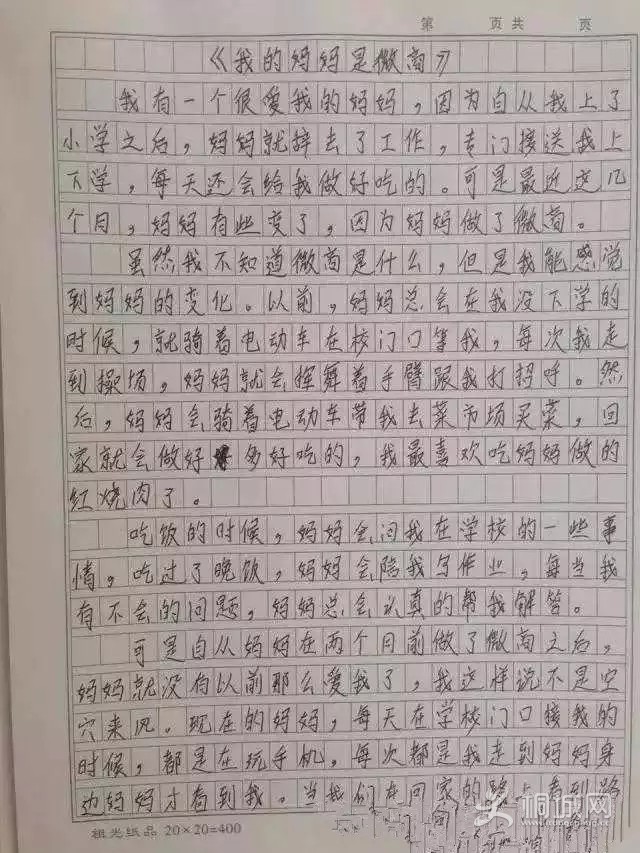 第 页 共 页
《我的妈妈是微商》
我有一个很爱我的妈妈,因为自从我上了
小学之后,妈妈就辞去了工作,专门接送我上
下学,每天还会给我做好吃的。可是最近这几
个月,妈妈有些变了,因为妈妈做了微商。
虽然我不知道微商是什么,但是我能感觉
到妈妈的变化。以前,妈妈总会在我没下学的
时候,就骑着电动车在校门口等我,每次我走
到操场,妈妈就会挥舞着手臂跟我打招呼。然
后,妈妈会骑着电动车带我去菜市场买菜,回
家就会做好多好吃的,我最喜欢吃妈妈做的
红烧肉了。
吃饭的时候,妈妈会问我在学校的一些事
情,吃过了晚饭,妈妈会陪我写作业,每当我
有不会的问题,妈妈总会认真的帮我解答。
可是自从妈妈在两个月前做了微商之后,
妈妈就没有以前那么爱我了,我这样说不是空
穴来风。现在的妈妈,每天在学校门口接我的
时候,都是在玩手机,每次都是我走到妈妈身
边妈妈才看到我。当我们在回家的路上看到路
桐城网
祖光纸品 20×20=400